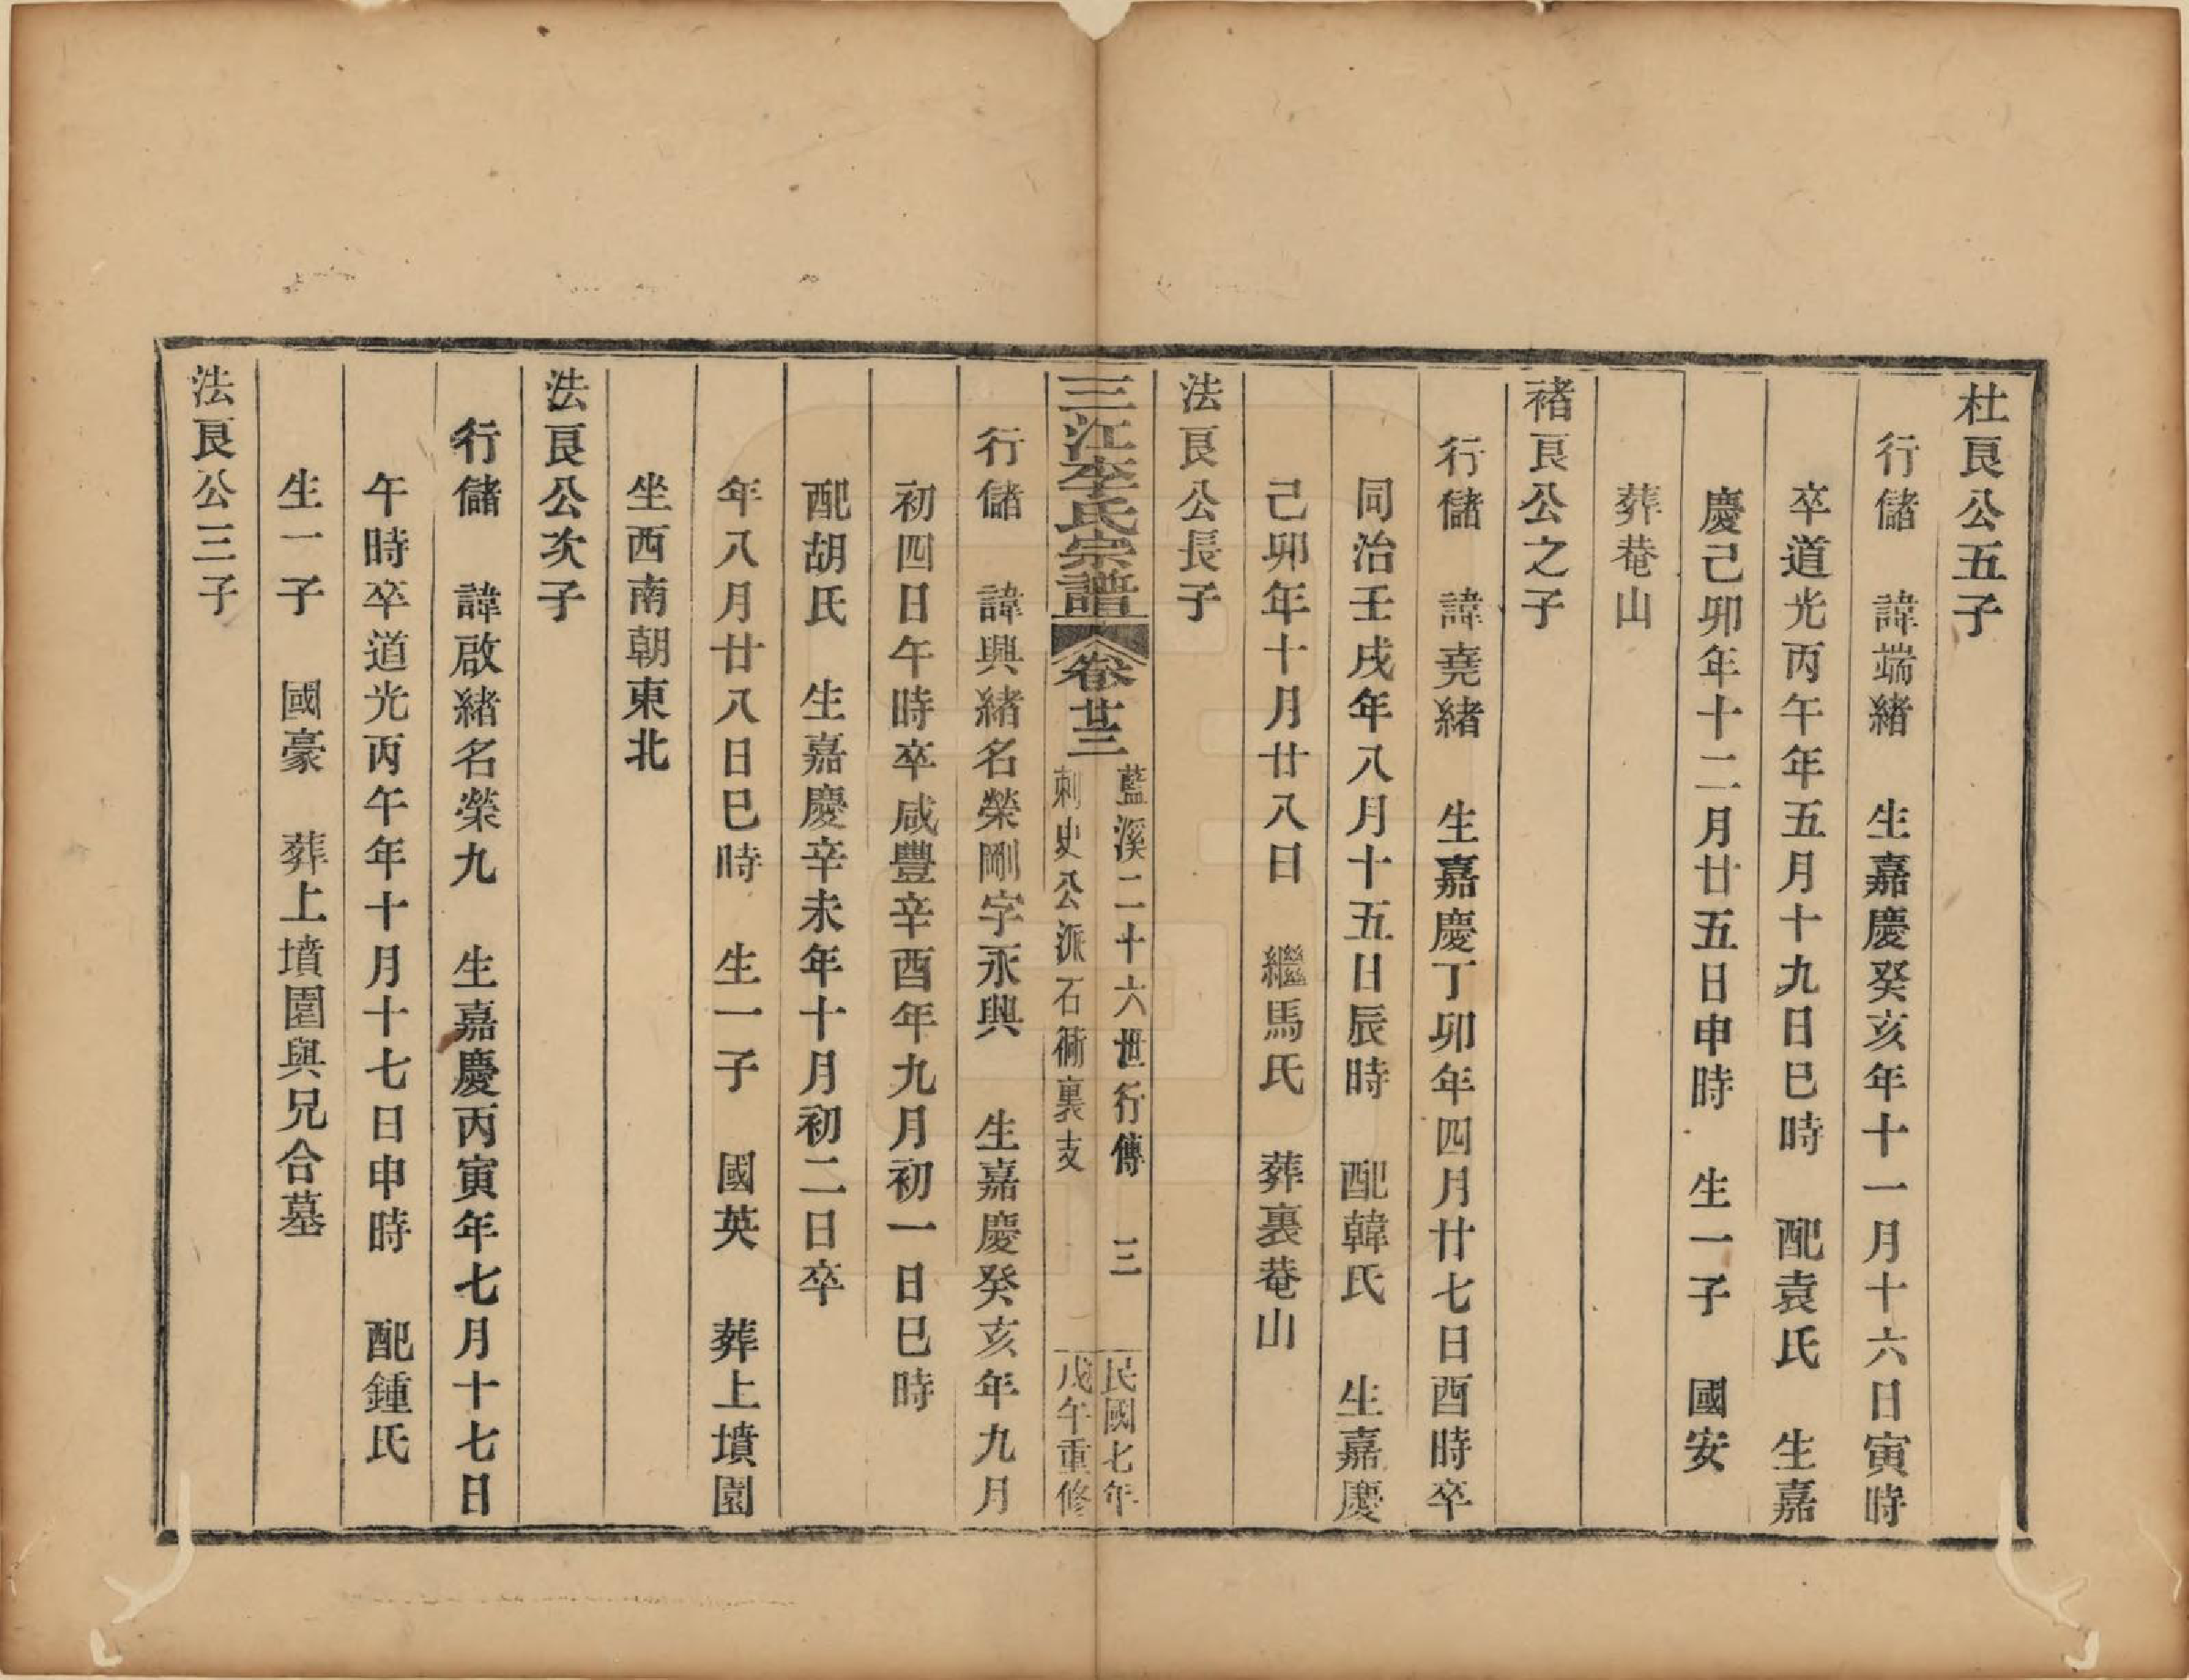 杜艮公五子
行儲 諱端緒 生嘉慶癸亥年十一月十六日寅時
卒道光丙午年五月十九日巳時 配袁氏 生嘉
慶己卯年十二月廿五日申時 生一子 國安
葬菴山
褚艮公之子
行儲 諱堯緒 生嘉慶丁卯年四月廿七日酉時卒
同治壬戌年八月十五日辰時 配韓氏 生嘉慶
己卯年十月廿八日 繼馬氏 葬裏菴山
法艮公長子
三江李氏宗譜 卷廿三
藍溪二十六世行傳 三
刺史公派石衕裏支
民國七年
戊午重修
行儲 諱興緒名榮剛字永興 生嘉慶癸亥年九月
初四日午時卒咸豐辛酉年九月初一日巳時
配胡氏 生嘉慶辛未年十月初二日卒
年八月廿八日巳時 生一子 國英 葬上墳園
坐西南朝東北
法艮公次子
行儲 諱啟緒名榮九 生嘉慶丙寅年七月十七日
午時卒道光丙午年十月十七日申時 配鍾氏
生一子 國豪 葬上墳園與兄合墓
法艮公三子